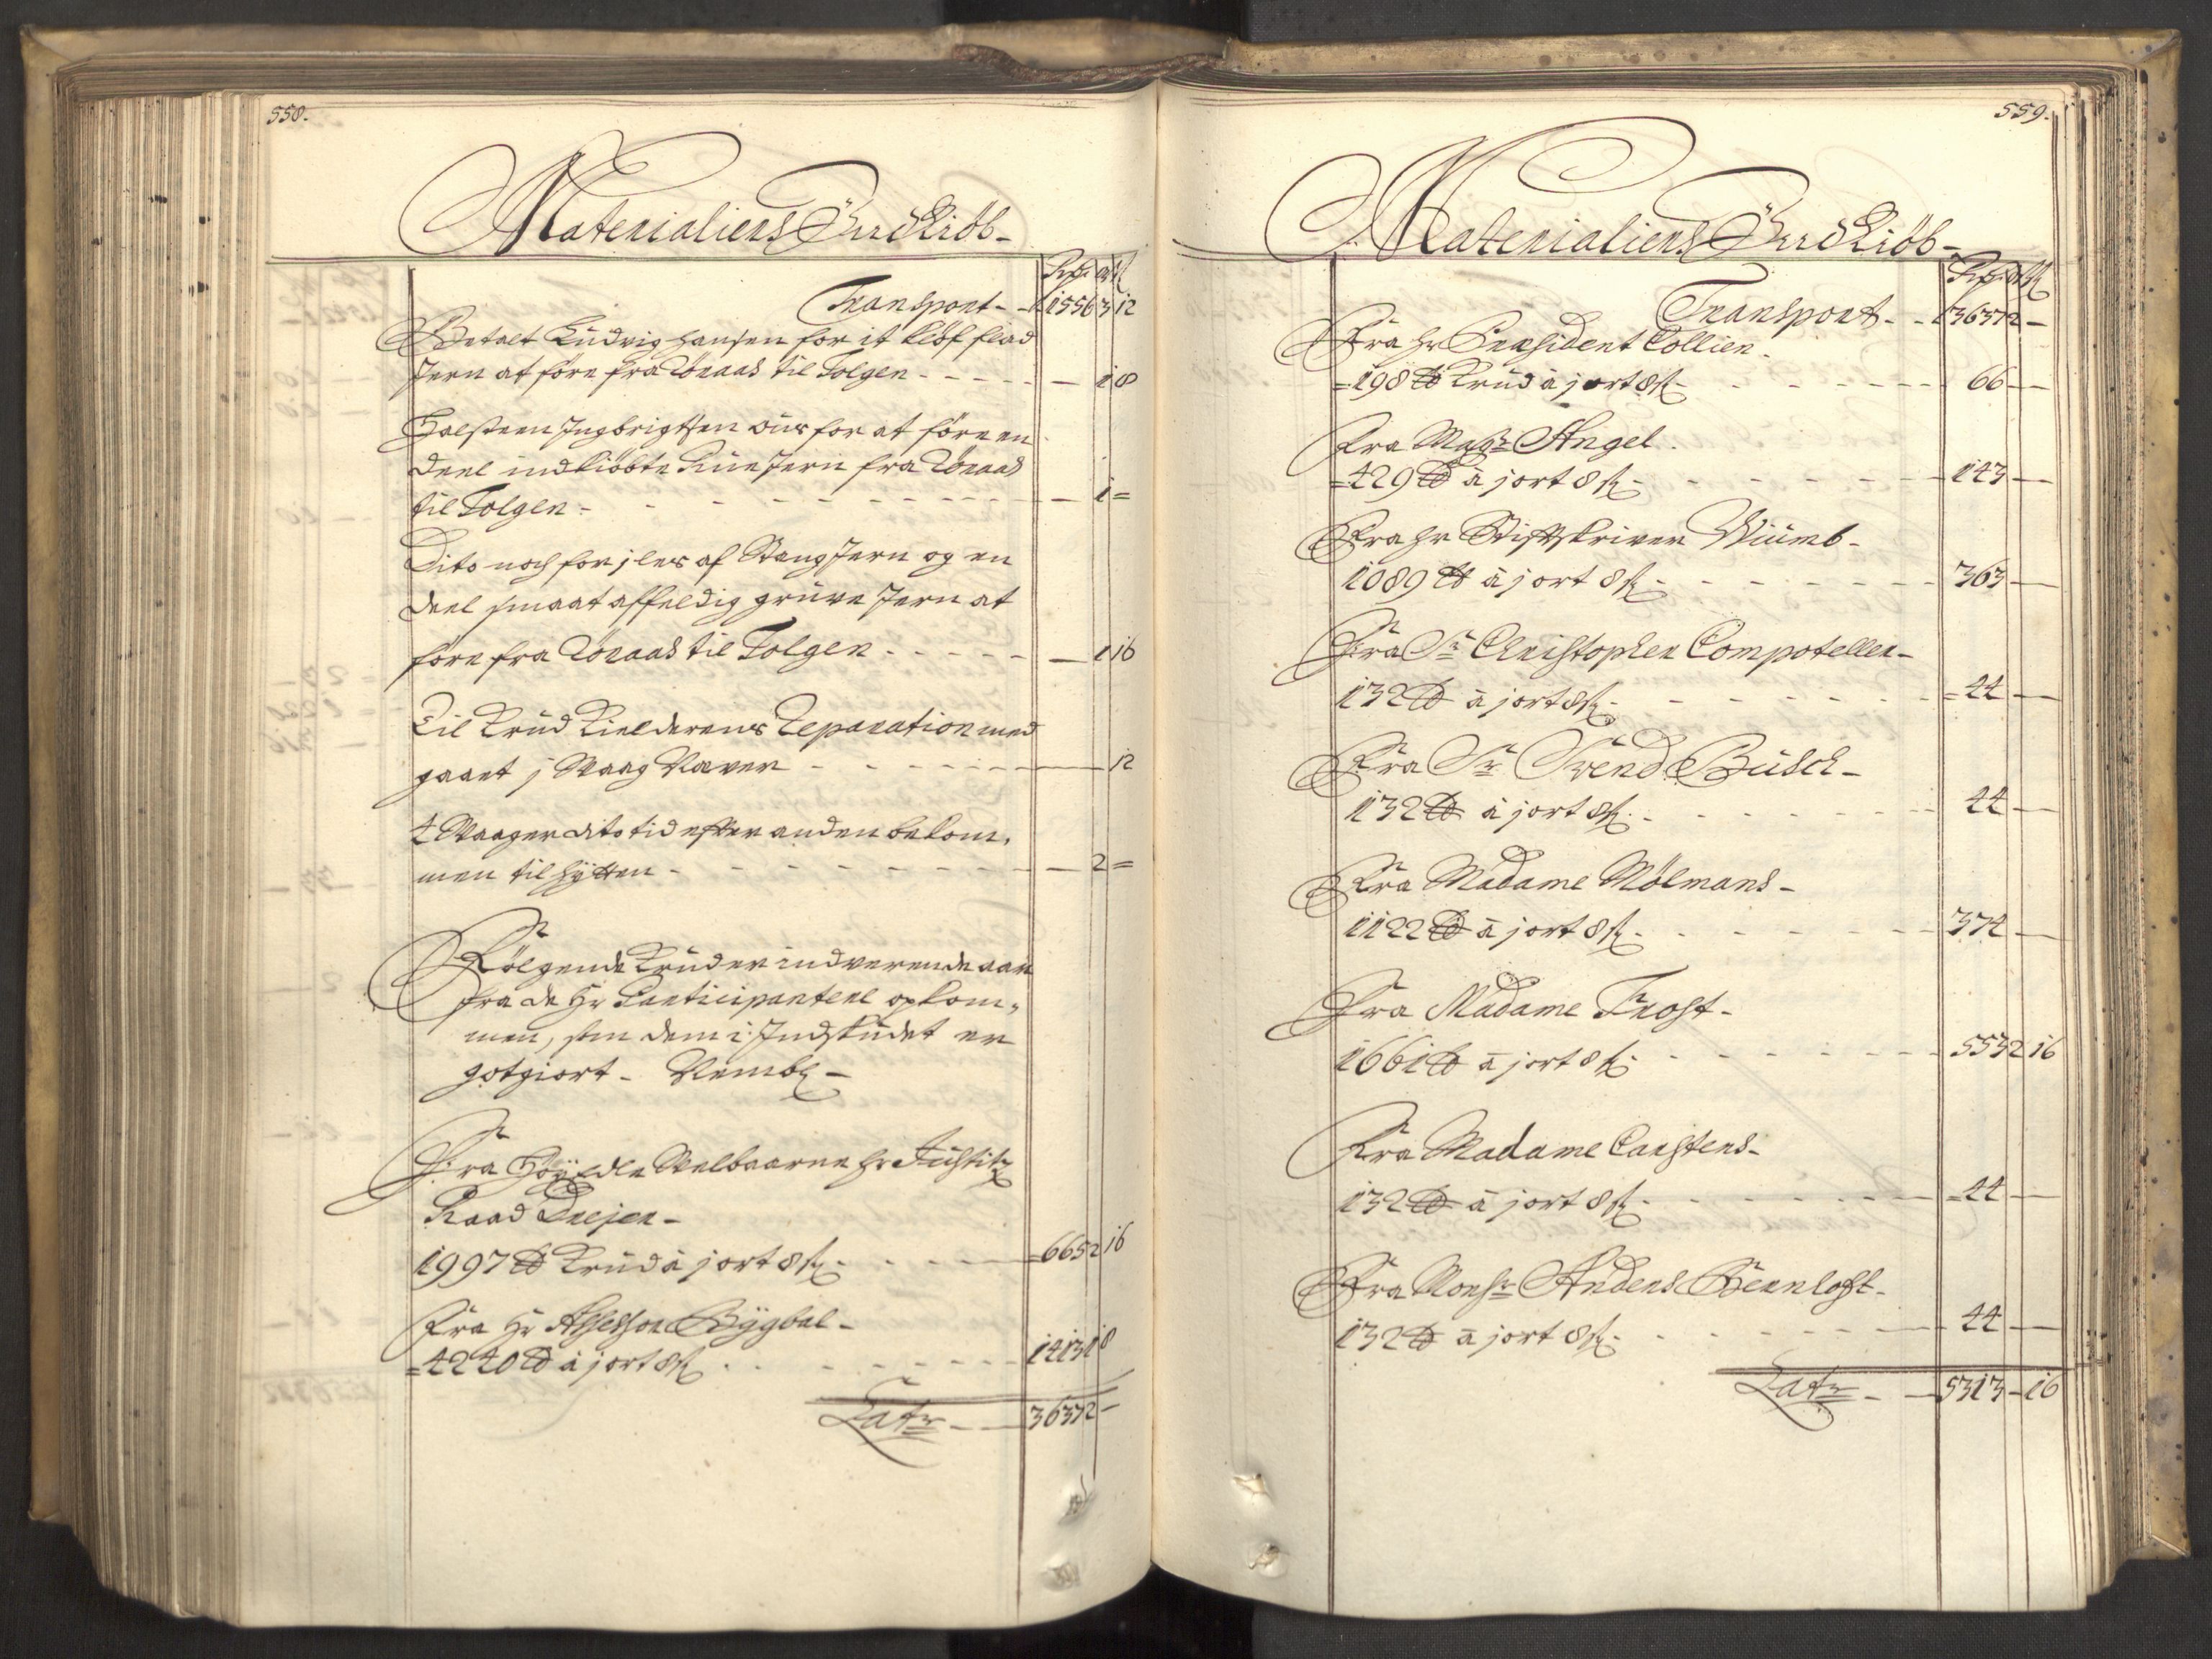 558.
Materialiers Indkiöb
Rdr. ort ß
Transport - 1556 3 12
Betalt Ludvig Hansen for it klöf flad
Jern at före fra Röraas til Tolgen - 1 8
Halsteen Ingbrigtsen Ous for at före en
deel indkiöbte Jern fra Röraas
til Tolgen - 1 =
Dito noch for j les af Stang Jern og en
deel smaat affeldig gruve Jern at
före fra Röraas til Tolgen - 1 16
Til Krud Kielderens Reparation med
gaaet j Vaag Næver - 12
4 Vaager dito tid efter anden bekom,
men til Hytten - 2 =
Fölgende Krud er indverende aar
fra de Hr Participantere opkom,
men, som dem i Indskudet er
gotgiort - Nembl -
Fra HöyEdle Velbaarne Hr Justitz
Raad Drejer -
1997 lb Krud à j ort 8 ß - 665 2 16
Fra Hr Assessor Bygbal -
= 4240 lb à j ort 8 ß - 1413 1 8
Latr - 3637 2 -
559.
Materialiers Indkiöb
Rdr. ort ß
Transport - 3637 2 -
Fra Hr Præsident Collier.
= 198 lb Krud à j ort 8 ß - 66 -
Fra Magr Angel.
= 429 lb à j ort 8 ß - 143 -
Fra Hr Stiftskriver Wiumb -
1089 lb à j ort 8 ß - 363 -
Fra Sr Christopher Compoteller -
132 lb à j ort 8 ß - = 44 -
Fra Sr Svend Busch -
132 lb à j ort 8 ß - 44 -
Fra Madame Mölmans -
1122 lb à j ort 8 ß - 374 -
Fra Madame Frost -
1661 lb à j ort 8 ß - 553 2 16
Fra Madame Carstens -
132 lb à j ort 8 ß - = 44 -
Fra Monsr Anders Bernhoft -
132 lb à j ort 8 ß - 44 -
Latr - 5313 - 16